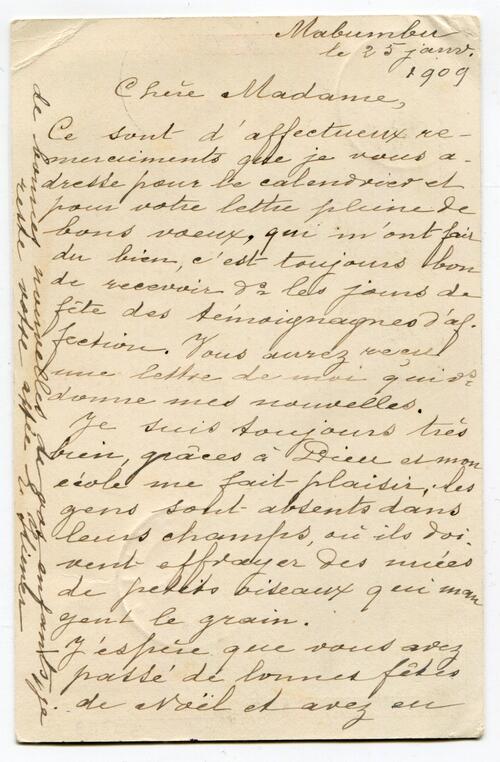 Mabumbu
le 25 janv.
1909
Chère Madame,
Ce sont d'affectueux re-
merciements que je vous a-
dresse pour le calendrier et
pour votre lettre pleine de
bons voeux, qui m'ont fait
du bien, c'est toujours bon
de recevoir ds les jours de
fête des témoignagnes d'af-
fection. Vous aurez reçu
une lettre de moi qui vs
donne mes nouvelles.
Je suis toujours très
bien, grâces à Dieu et mon
école me fait plaisir, les
gens sont absents dans
leurs champs, où ils doi-
vent effrayer des nuées
de petits oiseaux qui man
gent le grain.
J'espère que vous avez
passé de bonnes fêtes
de Noël et avez eu
de bonnes nouvelles de vos enfants, je
reste votre affée E.